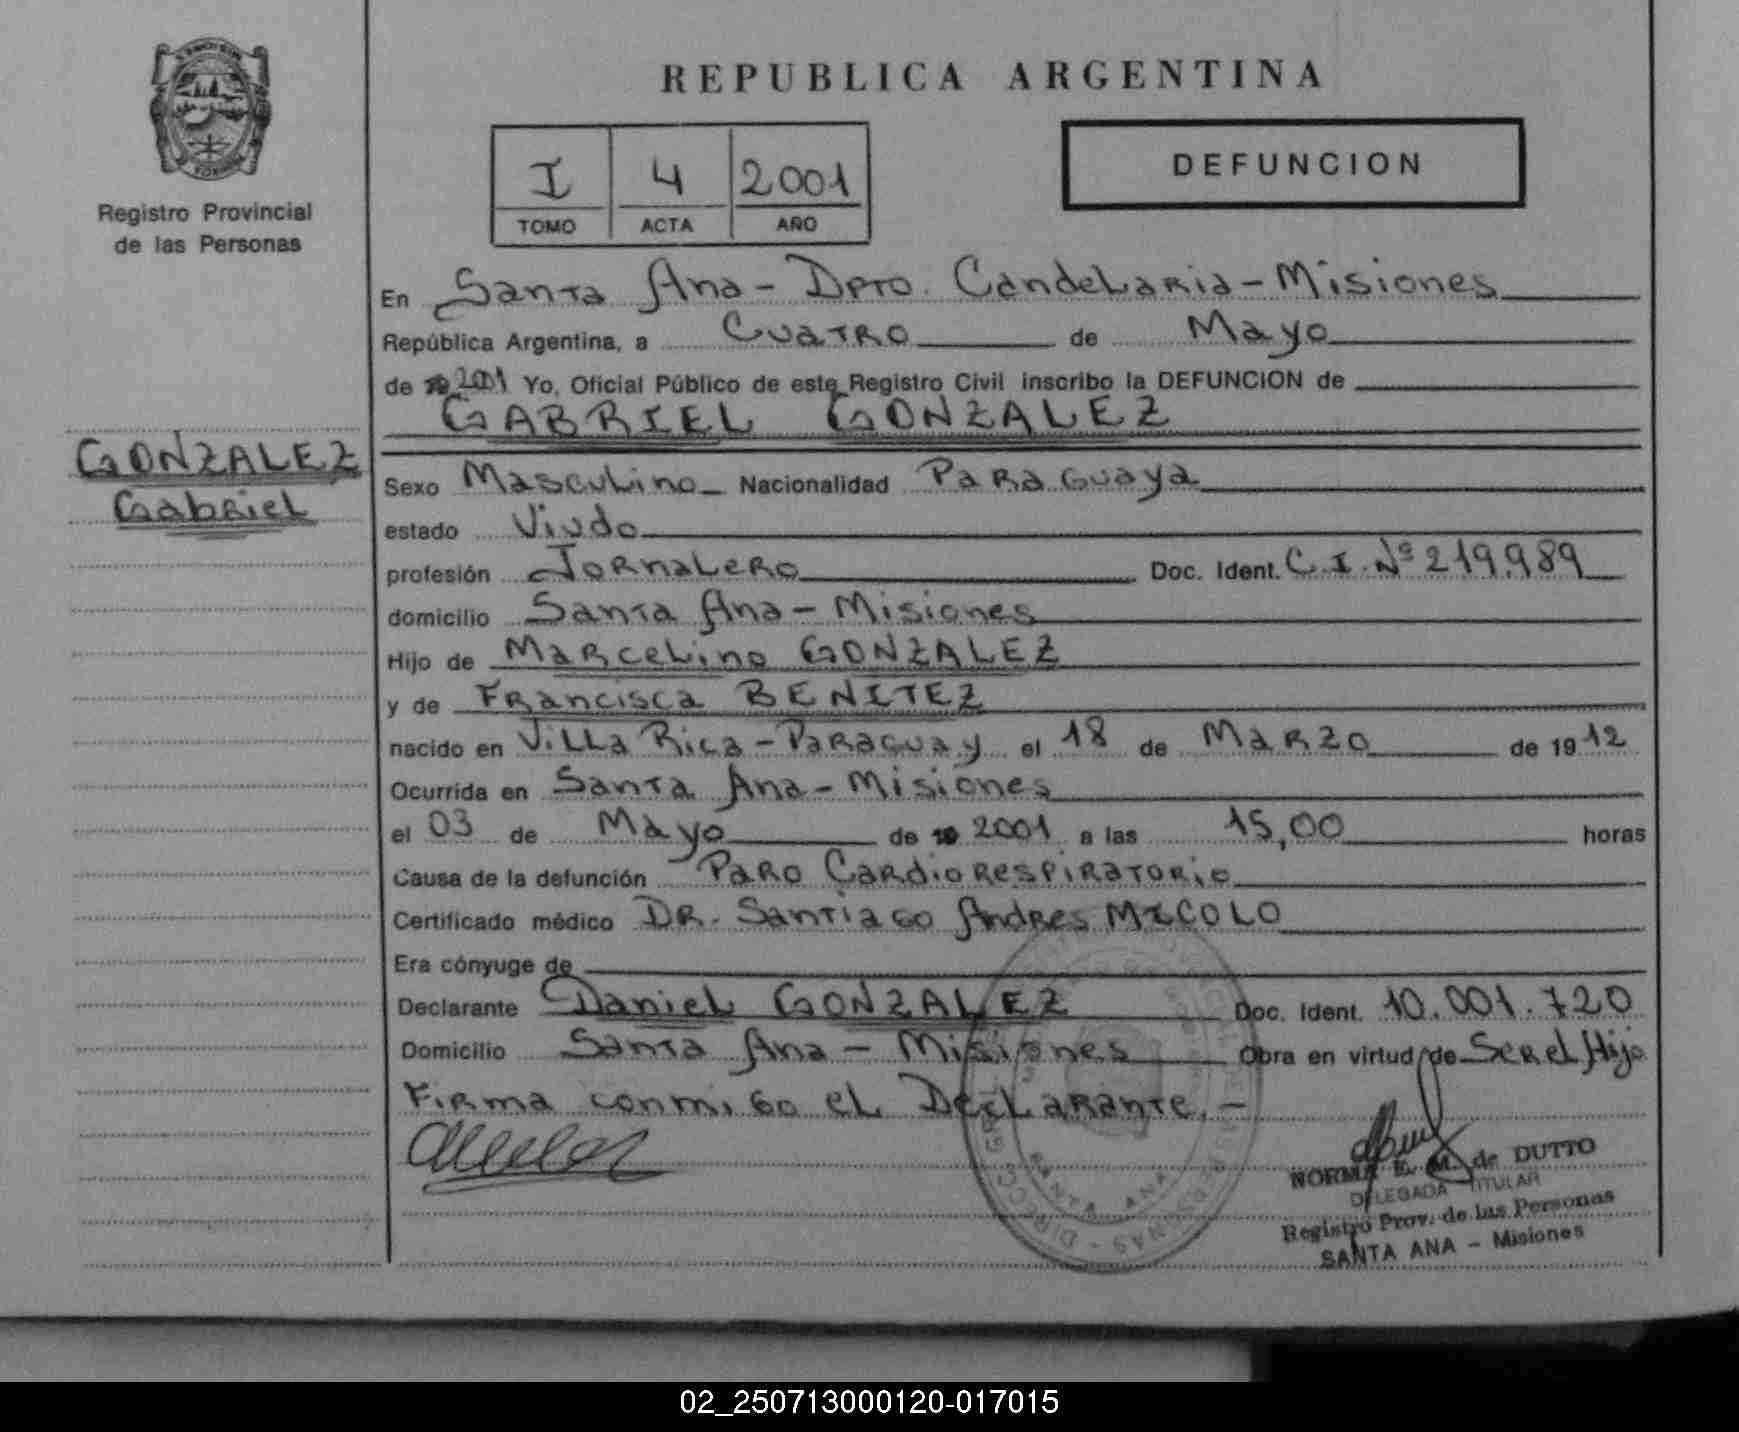 REPUBLICA ARGENTINA
Registro Provincial
de las Personas
I 4 2001
TOMO ACTA AÑO
DEFUNCION
En Santa Ana - Dpto. Candelaria - Misiones
República Argentina, a Cuatro de Mayo
de 2001 Yo, Oficial Público de este Registro Civil inscribo la DEFUNCION de
GABRIEL GONZALEZ
GONZALEZ
Gabriel
Sexo Masculino Nacionalidad Paraguaya
estado Viudo
profesión Jornalero Doc. Ident. C.I. Nº 219.989
domicilio Santa Ana - Misiones
Hijo de Marcelino GONZALEZ
y de Francisca BENITEZ
nacido en Villa Rica - Paraguay el 18 de Marzo de 1912
Ocurrida en Santa Ana - Misiones
el 03 de Mayo de 2001 a las 15,00 horas
Causa de la defunción Paro Cardiorespiratorio
Certificado médico DR. Santiago Andres MICOLO
Era cónyuge de
Declarante Daniel GONZALEZ Doc. Ident. 10.001.720
Domicilio Santa Ana - Misiones Obra en virtud de Ser el Hijo
Firma conmigo el Declarante. -
NORMA E. M. de DUTTO
DELEGADA TITULAR
Registro Prov. de las Personas
SANTA ANA - Misiones
SANTA ANA
02_250713000120-017015